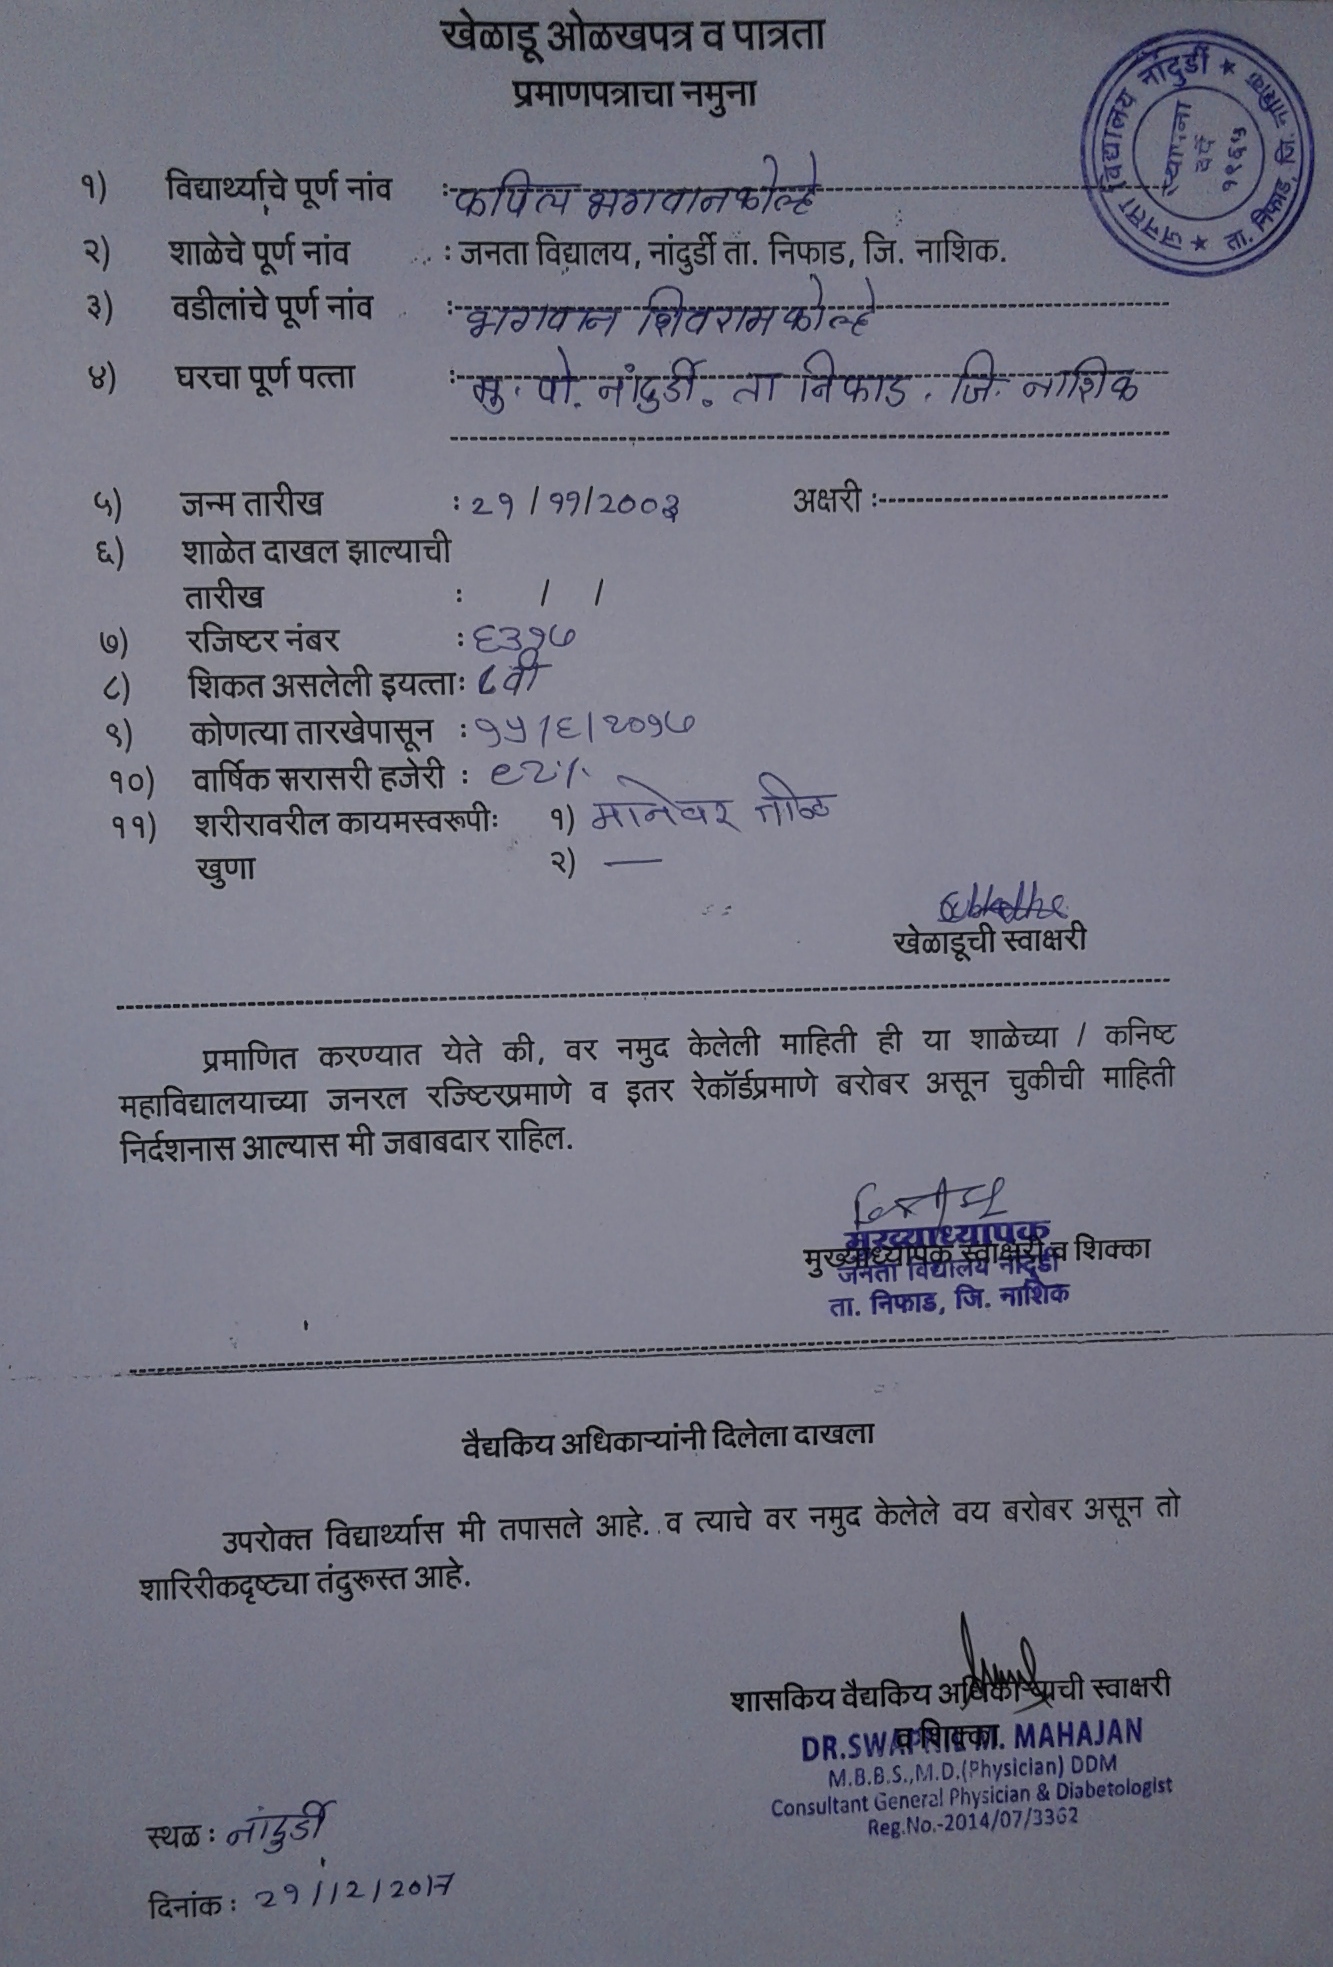 खेळाडू ओळखपत्र व पात्रता
प्रमाणपत्राचा नमुना
जनता विद्यालय नांदुर्डी ★ ता. निफाड, जि. नाशिक ★
स्थापना
वर्ष
१९६५
१) विद्यार्थ्याचे पूर्ण नांव : कपिल भगवान कोल्हे
२) शाळेचे पूर्ण नांव : जनता विद्यालय, नांदुर्डी ता. निफाड, जि. नाशिक.
३) वडीलांचे पूर्ण नांव : भगवान शिवराम कोल्हे
४) घरचा पूर्ण पत्ता : मु. पो. नांदुर्डी. ता निफाड. जि. नाशिक
५) जन्म तारीख : २१/११/२००३ अक्षरी :
६) शाळेत दाखल झाल्याची
तारीख : / /
७) रजिष्टर नंबर : ६३१७
८) शिकत असलेली इयत्ताः ८वी
९) कोणत्या तारखेपासून : १५/६/२०१७
१०) वार्षिक सरासरी हजेरी : ९२%
११) शरीरावरील कायमस्वरूपीः १) मानेवर तीळ
खुणा २) —
खेळाडूची स्वाक्षरी
प्रमाणित करण्यात येते की, वर नमुद केलेली माहिती ही या शाळेच्या / कनिष्ट
महाविद्यालयाच्या जनरल रज्टिरप्रमाणे व इतर रेकॉर्डप्रमाणे बरोबर असून चुकीची माहिती
निर्दशनास आल्यास मी जबाबदार राहिल.
मुख्याध्यापक
मुख्याध्यापक स्वाक्षरी व शिक्का
जनता विद्यालय नांदुर्डी
ता. निफाड, जि. नाशिक
वैद्यकिय अधिकाऱ्यांनी दिलेला दाखला
उपरोक्त विद्यार्थ्यास मी तपासले आहे. व त्याचे वर नमुद केलेले वय बरोबर असून तो
शारिरीकदृष्ट्या तंदुरूस्त आहे.
शासकिय वैद्यकिय अधिकाऱ्याची स्वाक्षरी
व शिक्का.
DR. MAHAJAN
M.B.B.S.,M.D.(Physician) DDM
Consultant General Physician & Diabetologist
Reg.No.-2014/07/3362
स्थळ : नांदुर्डी
दिनांक : २१/12/2017